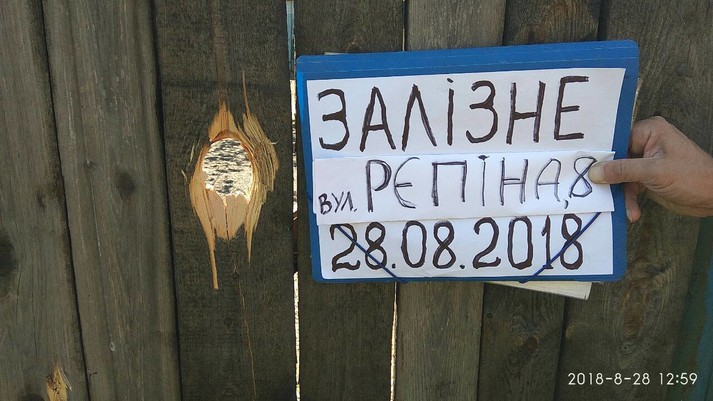 ЗАЛІЗНЕ
вул. РЕПІНА,8
28.08.2018
2018-8-28 12:59